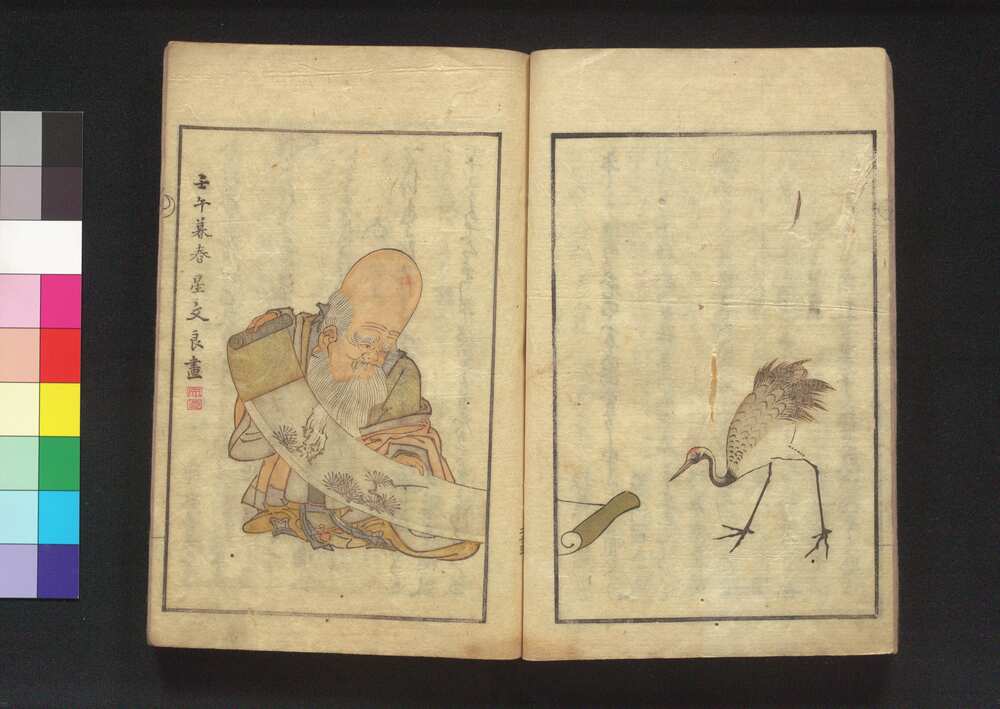 壬午暮春星文良畫